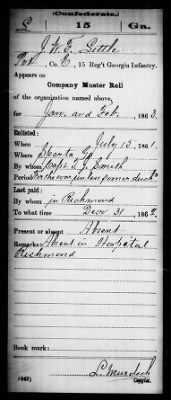 (Confederate.)
L 15 Ga.
J. W. F. Little
Pvt, Co. E, 15 Reg't Georgia Infantry.
Appears on
Company Muster Roll
of the organization named above,
for Jan. and Feb., 1863.
Enlisted:
When July 15, 1861.
Where Sparta Ga
By whom Capt T. J. Smith
Period For the war
Last paid:
By whom in Richmond
To what time Decr 31, 1862.
Present or absent Absent
Remarks: Absent in Hospital
Richmond
Book mark:
L. Murdoch
Copyist.